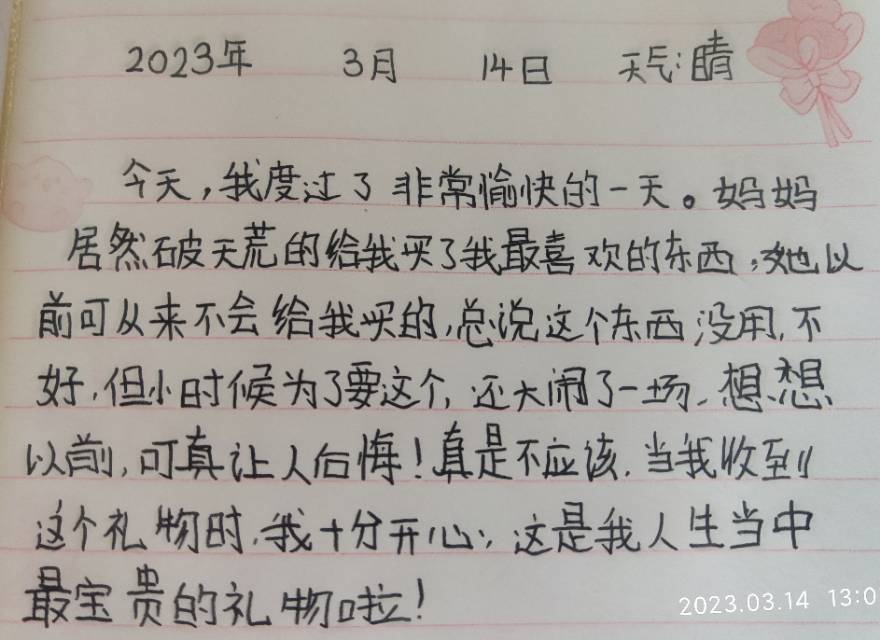 2023年 3月 14日 天气:晴
今天,我度过了非常愉快的一天。妈妈
居然破天荒的给我买了我最喜欢的东西,她以
前可从来不会给我买的,总说这个东西没用,不
好,但小时候为了要这个,还大闹了一场,想想
以前,可真让人后悔!真是不应该,当我收到
这个礼物时,我十分开心,这是我人生当中
最宝贵的礼物啦!
2023.03.14 13:0